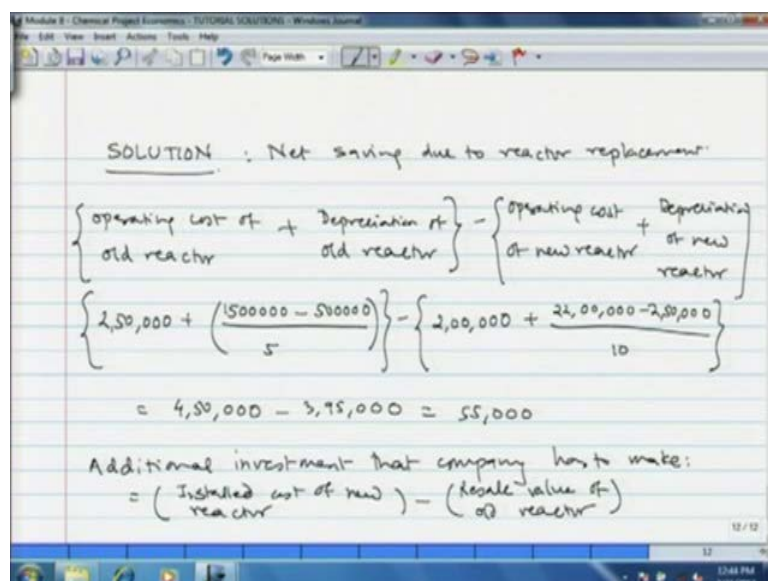 Module 8 - Chemical Project Economics - TUTORIAL SOLUTIONS - Windows Journal
File Edit View Insert Actions Tools Help
Page Width
SOLUTION : Net saving due to reactor replacement.
{ operating cost of old reactor + Depreciation of old reactor } - { operating cost of new reactor + Depreciation of new reactor }
{ 2,50,000 + ( 1500000 - 500000 / 5 ) } - { 2,00,000 + 22,00,000 - 2,50,000 / 10 }
= 4,50,000 - 3,95,000 = 55,000
Additional investment that company has to make:
= ( Installed cost of new reactor ) - ( Resale value of old reactor )
12/12
12
12:44 PM